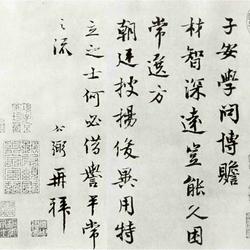 子安學問博贍
材智深遠豈能久困
常選方
朝廷搜揚俊異用特
立之士何必借譽平常
之流
公弼再拜